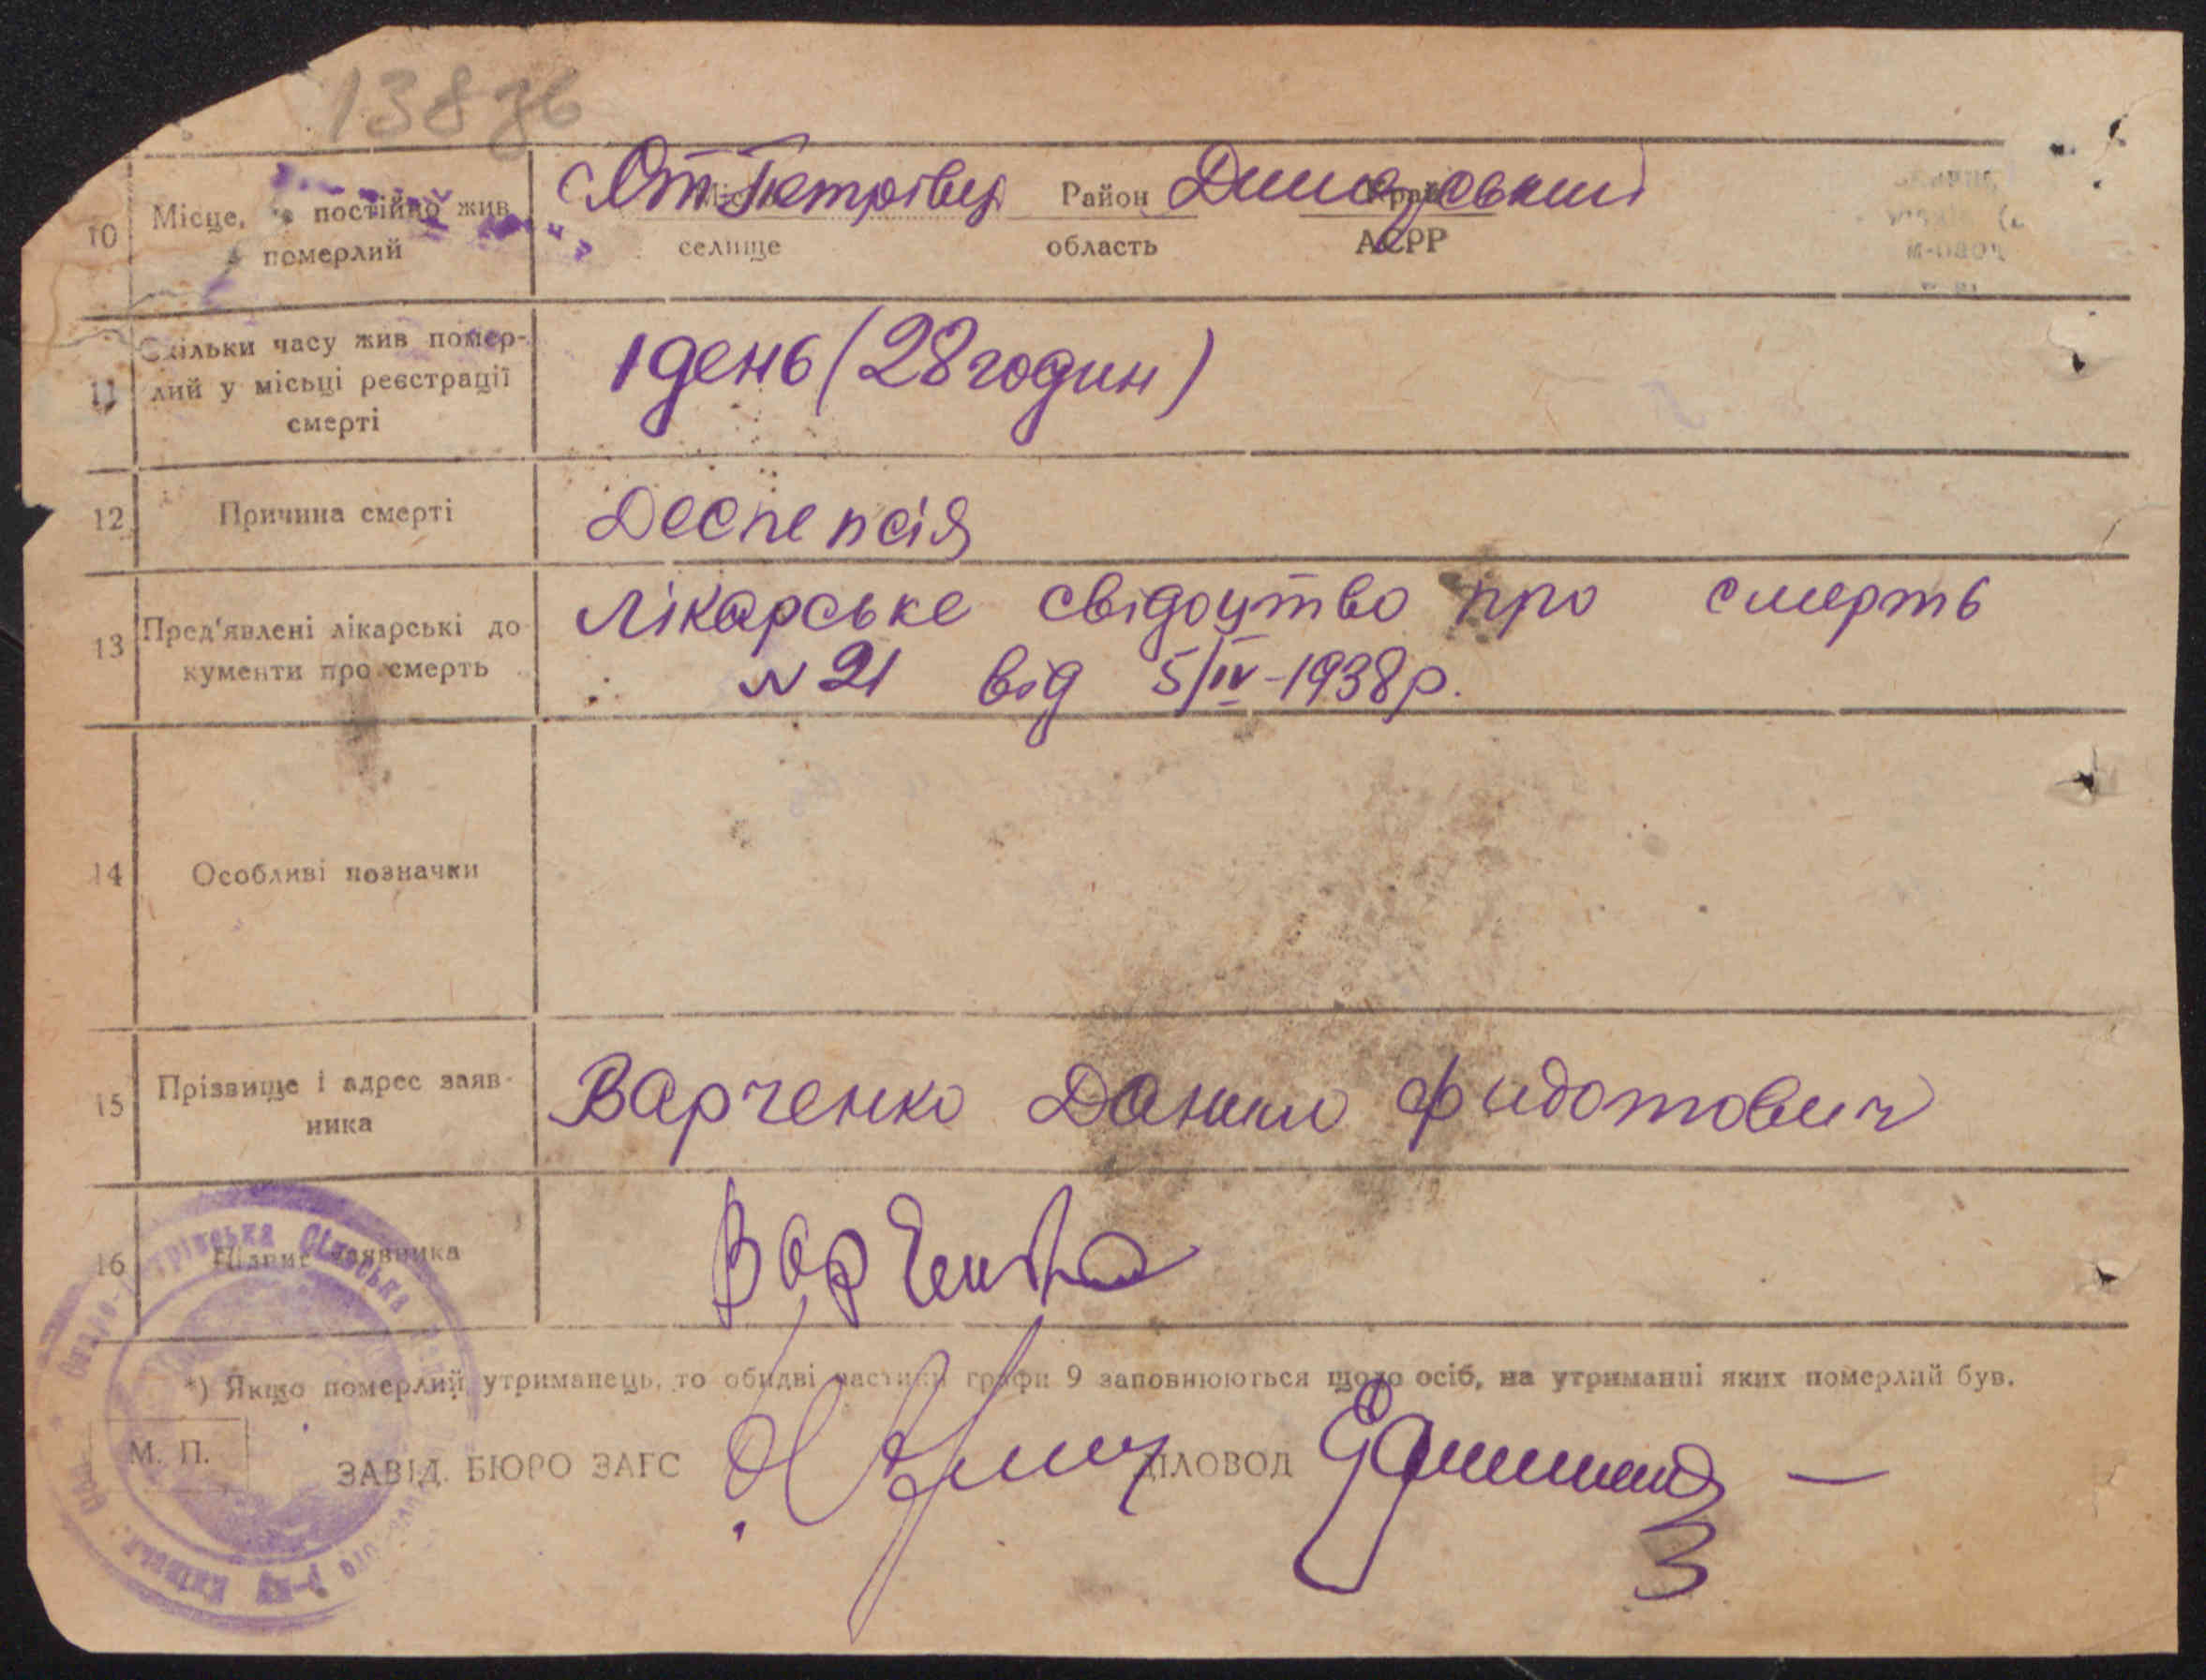 138 зв
10 Місце, де постійно жив померлий
Ст Петрівці Район Димерський
селище область АСРР
11 Скільки часу жив помер-
лий у місьці реєстрації
смерті
1 день (28 годин)
12 Причина смерті
Деспепсія
13 Пред'явлені лікарські до
кументи про смерть
Лікарське свідоцтво про смерть
N 21 від 5/IV-1938 р.
14 Особливі позначки
15 Прізвище і адрес заяв-
ника
Варченко Данило Фидотович
16 Підпис заявника
Варченко
*) Якщо померлий утриманець, то обидві частини графи 9 заповнюються щодо осіб, на утриманні яких померлий був.
М. П.
ЗАВІД. БЮРО ЗАГС ДІЛОВОД